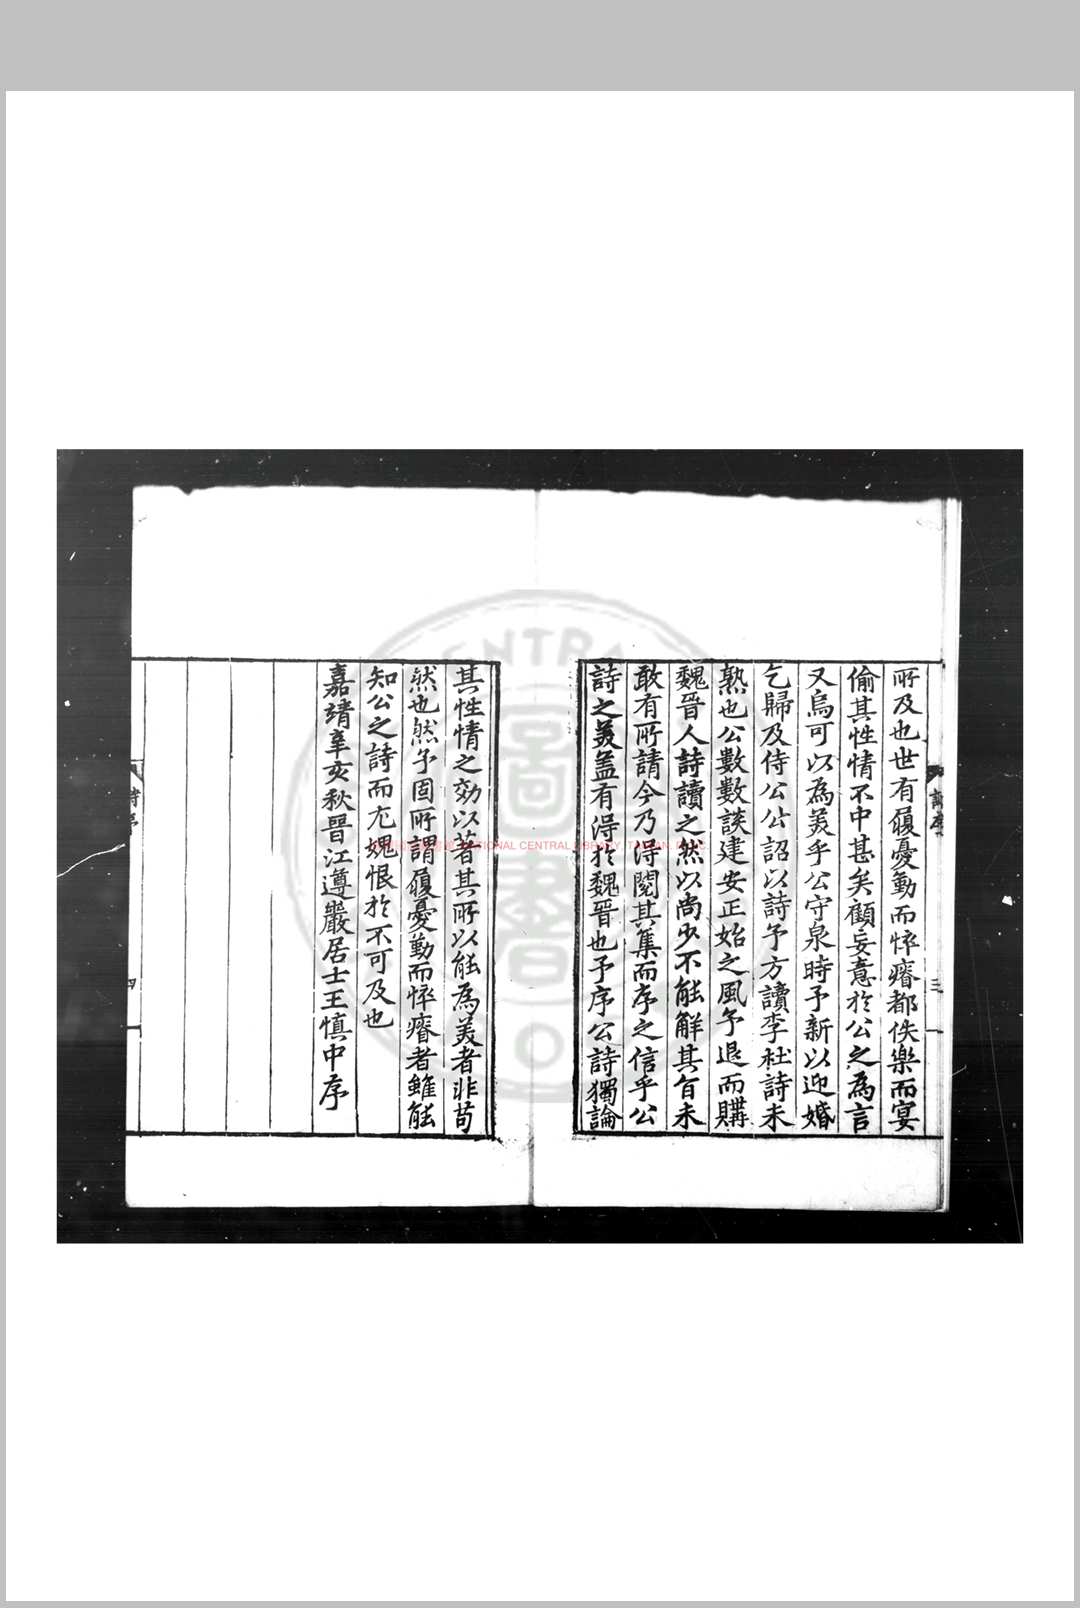 所及也世有履憂勤而悴瘠都佚樂而宴
偷其性情不中甚矣顧妄意於公之為言
又烏可以為美乎公守泉時予新以迎婚
乞歸及侍公公詔以詩予方讀李杜詩未
熟也公數數談建安正始之風予退而購
魏晉人詩讀之然以尚少不能解其旨未
敢有所請今乃得閱其集而序之信乎公
詩之美盖有得於魏晉也予序公詩獨論
其性情之効以著其所以能為美者非苟
然也然予固所謂履憂勤而悴瘠者雖能
知公之詩而尤媿恨於不可及也
嘉靖辛亥秋晉江遵巖居士王慎中序
詩序
三
詩序
四
NATIONAL CENTRAL LIBRARY, TAIWAN, R.O.C.
圖書